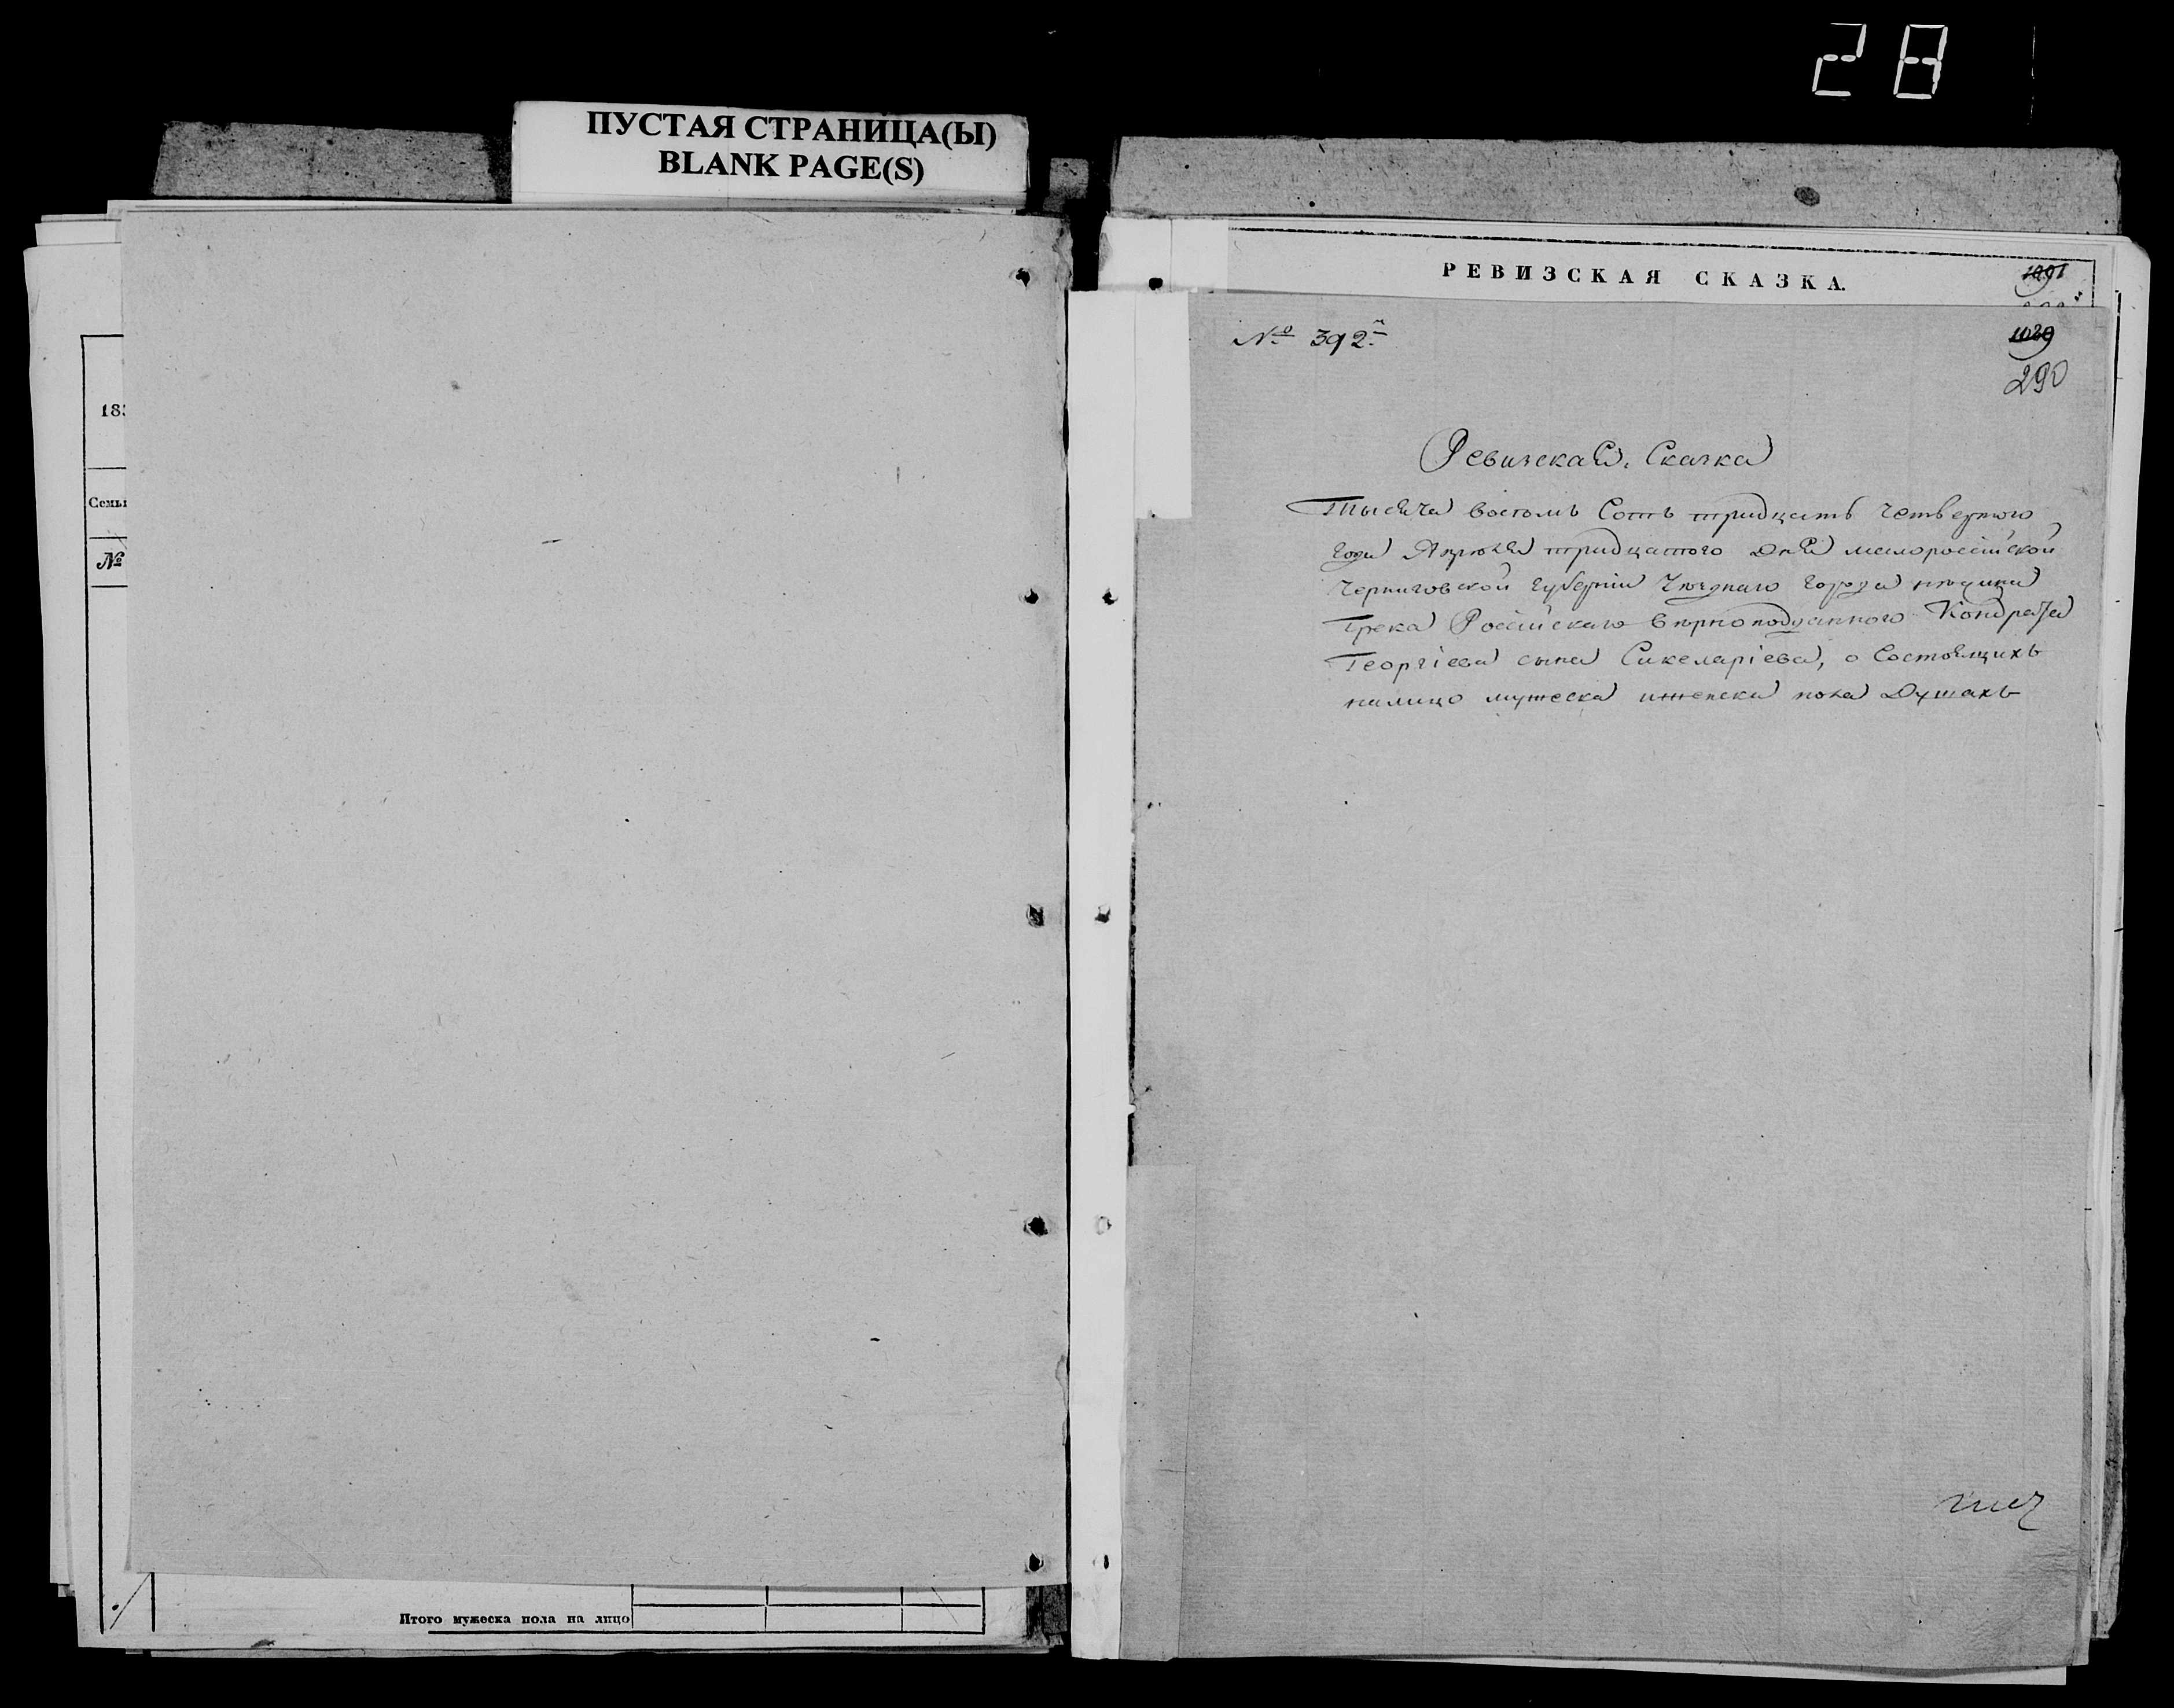 28
ПУСТАЯ СТРАНИЦА(Ы)
BLANK PAGE(S)
Семьи
№
Итого мужеска пола на лицо
РЕВИЗСКАЯ СКАЗКА.
1091
№ 392й
1089
290
Ревизская Сказка
Тысяча восемь Сотъ тридцать четвертого
года Апреля тридцатого дня малороссійской
черниговской губерніи уезднаго города нѣжина
Грека Россійскаго вѣрноподданного Кондрата
Георгіева сына Сакеларіева, о Состоящихъ
налицо мужеска иженска пола душахъ